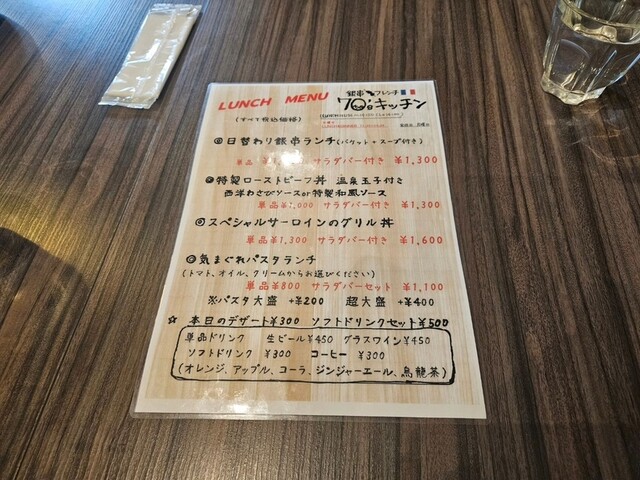 LUNCH MENU
銀串フレンチ
70'sキッチン
(すべて税込価格)
◎日替わり銀串ランチ(バケット・スープ付き)
サラダバー付き ¥1,300
◎特製ローストビーフ丼 温泉玉子付き
西洋わさびソースor特製和風ソース
単品¥1,000 サラダバー付き ¥1,300
◎スペシャルサーロインのグリル丼
単品¥1,300 サラダバー付き ¥1,600
◎気まぐれパスタランチ
(トマト、オイル、クリームからお選びください)
単品¥800 サラダバーセット ¥1,100
※パスタ大盛 +¥200 超大盛 +¥400
☆ 本日のデザート¥300 ソフトドリンクセット¥500
単品ドリンク 生ビール¥450 グラスワイン¥450
ソフトドリンク ¥300 コーヒー ¥300
(オレンジ、アップル、コーラ、ジンジャーエール、烏龍茶)